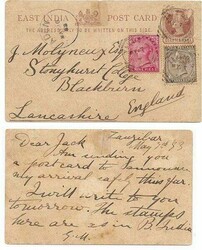 EAST INDIA POST CARD
THE ADDRESS ONLY TO BE WRITTEN ON THIS SIDE
J Molyneux Esq
Stonyhurst Colge
Blackburn
Lancashire
England
Zanzibar
May 7th
Dear Jack
I'm sending you
a postcard to announce
my arrival safe thus far.
I will write to you
tomorrow. The stamps
here are as in B. India